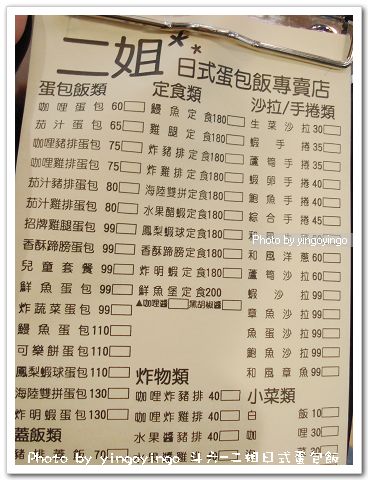 二姐**日式蛋包飯專賣店
蛋包飯類
咖哩蛋包 60
茄汁蛋包 65
咖哩豬排蛋包 75
咖哩雞排蛋包 75
茄汁豬排蛋包 80
茄汁雞排蛋包 80
招牌雞腿蛋包 99
香酥蹄膀蛋包 99
兒童套餐 99
鮮魚蛋包 99
炸蔬菜蛋包 99
鰻魚蛋包 110
可樂餅蛋包 110
鳳梨蝦球蛋包 110
海陸雙拼蛋包 130
炸明蝦蛋包 130
蓋飯類
定食類
鰻魚定食180
雞腿定食180
炸豬排定食180
炸雞排定食180
海陸雙拼定食180
水果醋蝦定食180
鳳梨蝦球定食180
香酥蹄膀定食180
炸明蝦定食180
鮮魚煲定食200
▲咖哩醬 黑胡椒醬
炸物類
咖哩炸豬排 40
咖哩炸雞排 40
水果醬豬排 40
沙拉/手捲類
生菜沙拉 30
蝦手捲 35
蘆筍手捲 35
蝦卵手捲 40
鮑魚手捲 40
綜合手捲 45
和風洋蔥 60
蘆筍沙拉 60
蝦沙拉 99
章魚沙拉 99
魚蛋沙拉 99
鮑魚沙拉 99
和風章魚 99
小菜類
白飯 10
咖哩 30
Photo by yingoyingo
Photo by yingoyingo 斗六-二姐日式蛋包飯